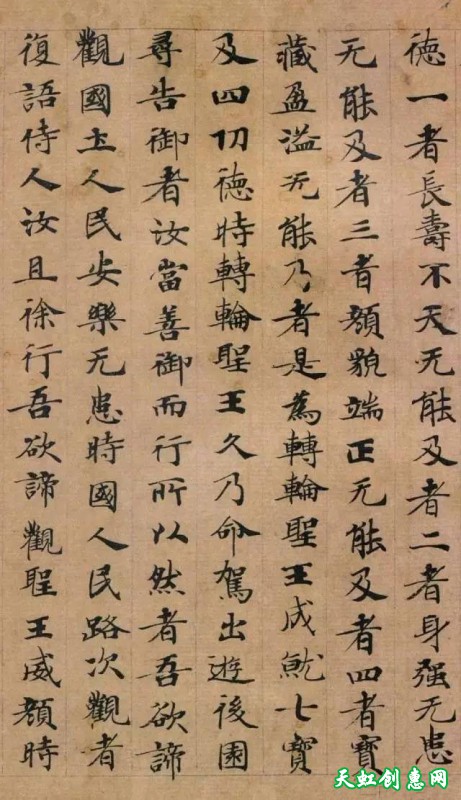 德一者長壽不夭无能及者二者身强无患
无能及者三者顔貌端正无能及者四者寶
藏盈溢无能及者是為轉輪聖王成就七寶
及四功德時轉輪聖王久乃命駕出遊後園
尋告御者汝當善御而行所以然者吾欲諦
觀國土人民安樂无患時國人民路次觀者
復語侍人汝且徐行吾欲諦觀聖王威顔時
天虹创惠网